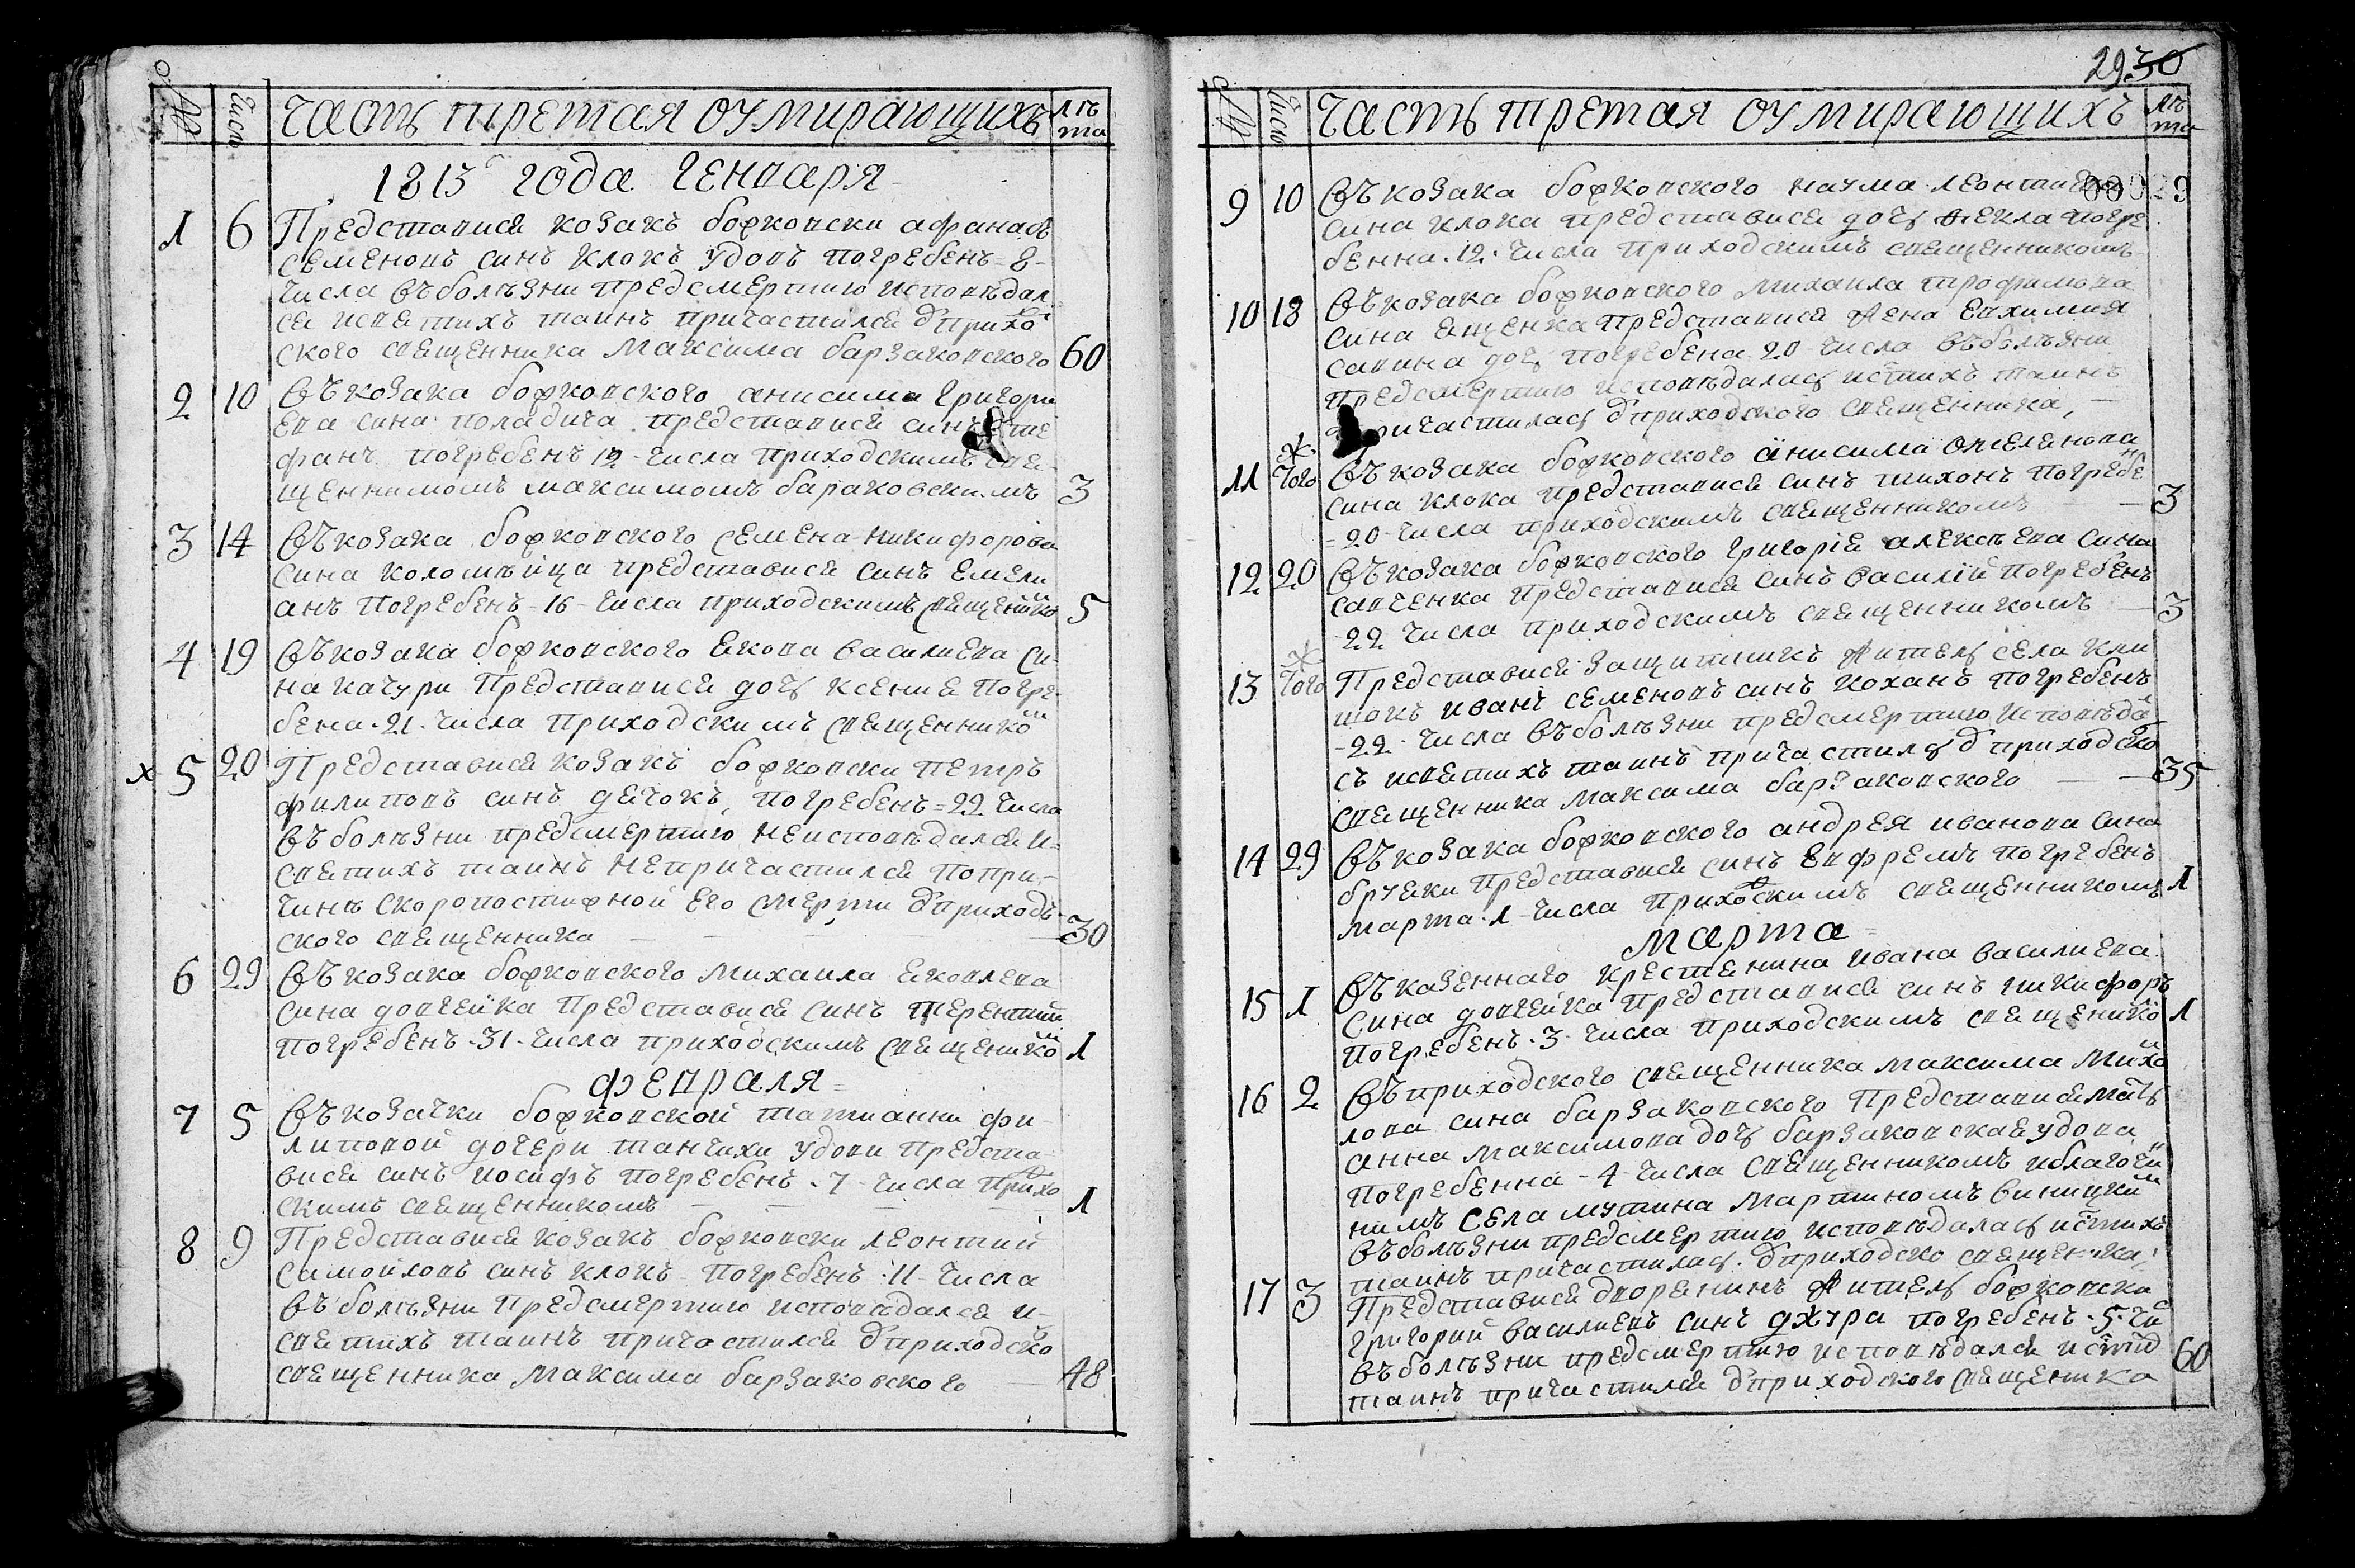 № Число Часть третая оумирающихъ лѣта
1813г года Генваря
1 6 Представися козакъ божковски афанасъ
семеновъ синъ Клокъ удовъ погребенъ-8-
числа въболѣзни предсмертию исповѣдал
ся исвятихъ таинъ причастился ѿприход
ского священника Максима барзаковского 60
2 10 Въ козака божковского анисима григори
ева сина поладича представися синъ сте
фанъ погребенъ 12 - числа приходскимъ свя-
щенникомъ максимомъ бараковскимъ 3
3 14 Въ козака божковского семена никифорова
сина коломѣйца представися синъ емели
анъ погребенъ-16-числа приходскимъ священиком 5
4 19 Въ козака божковского якова василиева си-
на качури представися дочь ксения погре-
бена-21-числа приходскимъ священником
х 5 20 Представися козакъ божковски петръ
филиповъ синъ дячокъ, погребенъ=22 числа
въ болѣзни предсмертию неисповѣдался и=
святихъ таинъ непричастился попри-
чинѣ скоропостижной его смерти ѿприход-
ского священника 30
6 29 Въ козака божковского михаила яковлева
сина довгейка представися синъ терентий
погребенъ-31-числа приходскимъ священиком 1
февраля=
7 5 Въ козачки божковской татианни фи-
липовой дочери танчихи удови предста-
вися синъ иосифъ погребенъ-7-числа приход
скимъ священникомъ 1
8 9 Представися козакъ божковски леонтий
самойловъ синъ клокъ погребенъ-11-числа
въ болѣзни предсмертию исповѣдался и-
святихъ таинъ причастился ѿприходско
священника Максима барзаковского 48
29. 30
№ Число Часть третая оумирающихъ лѣта
9 10 Въ козака божковского наума леонтиева
сина клока представися дочь фекла погре
бенна-12-числа приходскимъ священникомъ
10 18 Въ козака божковского михаила трофимова
сина ященка представися жена евхимия
савина дочь погребена 20-числа въболѣзни
предсмертию исповѣдалась истихъ таинъ
причастилась ѿприходского священника,
11 того Въ козака божковского анисима омеляна
сина клока представися синъ тихонъ погребен
=20-числа приходскимъ священникомъ 3
12 20 Въ козака божковского григория алексѣева сина
савченка представися синъ василий погребенъ
-22 числа приходскимъ священникомъ 3
13 того Представися защитникъ житель села кли
шокъ иванъ семеновъ синъ коханъ погребенъ
-22-числа въболѣзни предсмертию исповѣда
съ исвятихъ таинъ причастилъ ѿ приходско
священника максима барзаковского 35
14 29 Въ козака божковского андрея иванова сина
бруяки представися синъ евфремъ погребенъ
марта-1-числа приходскимъ священникомъ 1
Марта=
15 1 Въ казеннаго крестянина ивана василиева
сина довгейка представися синъ никифоръ
погребенъ-3-числа приходскимъ священиком 1
16 2 Въ приходского священника максима михаи
лова сина барзаковского представися мать
анна максимова дочь барзаковская удова
погребенна-4-числа священникомъ иблагочин
нимъ села мутина мартиномъ виницким
въболѣзни предсмертию исповѣдалась истихъ
таинъ причастилась ѿприходско священика,
17 3 Представися дворянинъ житель божковски
григорий василиевъ синъ джура погребенъ-5-чи
въболѣзни предсмертию исповѣдался истих
таинъ причастился ѿприходского священика 60